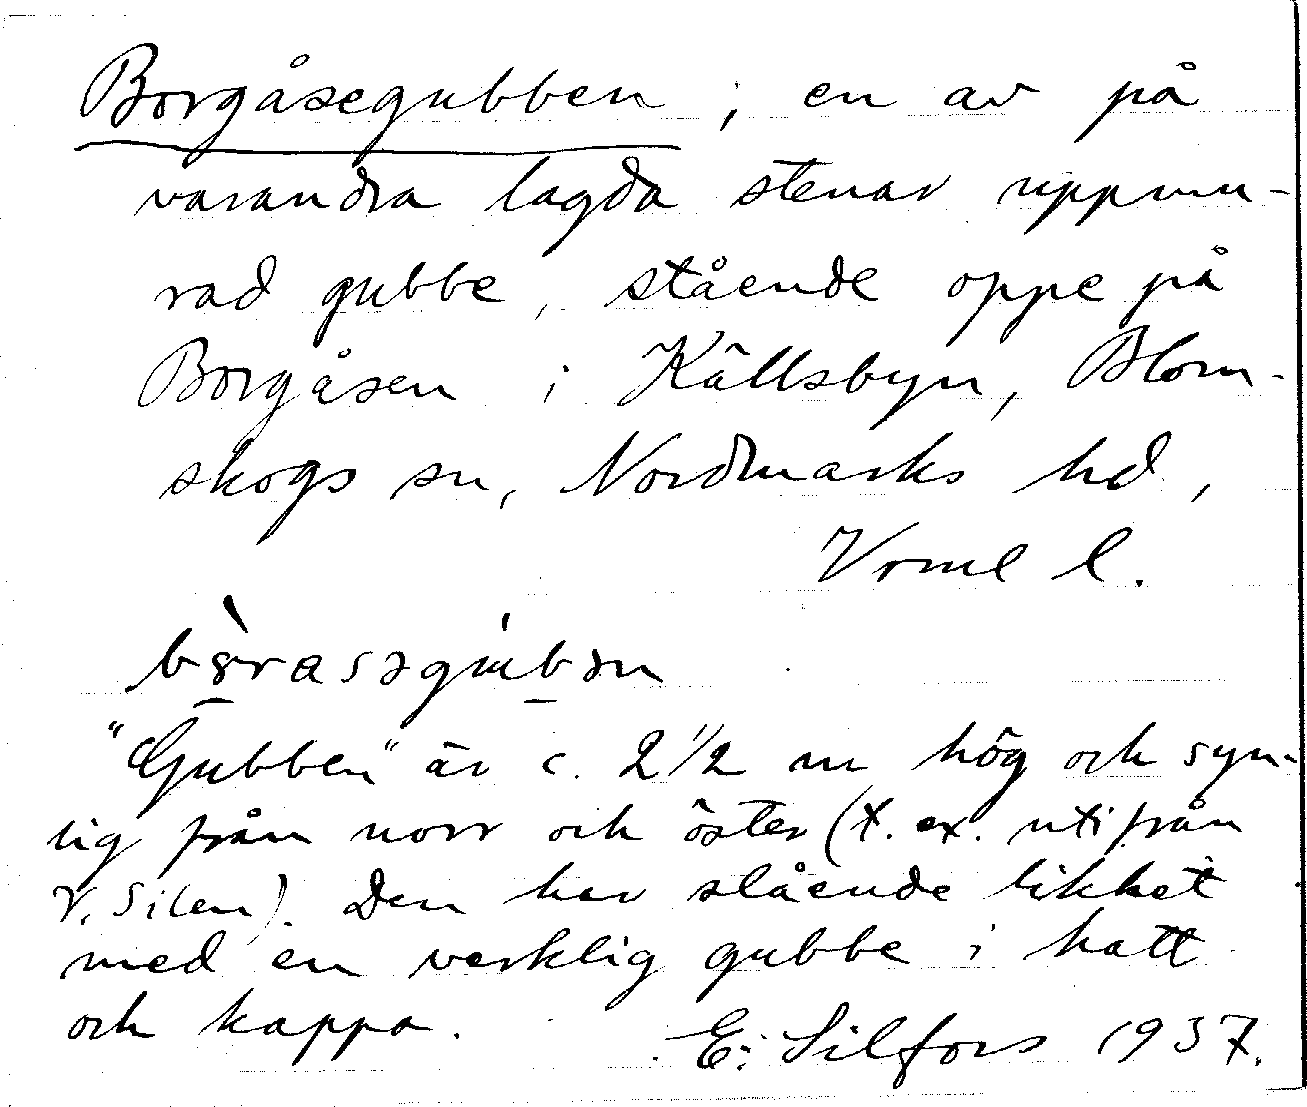 Borgåsegubben, en av på
varandra lagda stenar uppmu-
rad gubbe, stående oppe på
Borgåsen i Källsbyn, Blom-
skogs sn, Nordmarks hd,
Vrml l.
"Gubben" är c. 2 1/2 m hög och syn-
lig från norr och öster (t. ex. utifrån
V. Silen). Den har slående likhet
med en verklig gubbe i hatt
och kappa.
E. Silfors 1937.